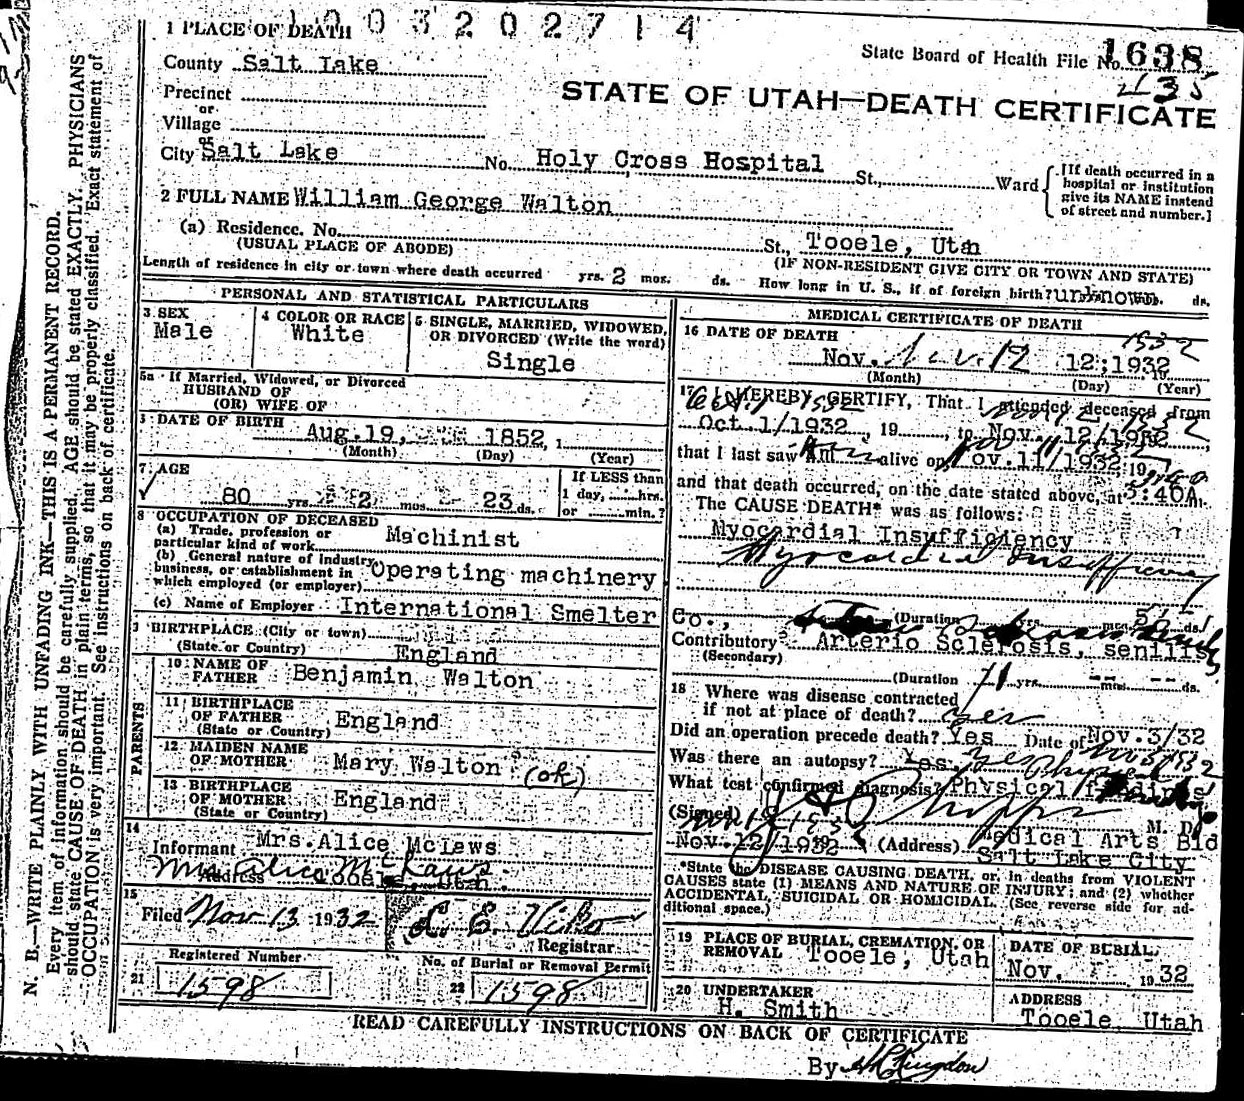 1003202714
1 PLACE OF DEATH
State Board of Health File No. 1638
435
County Salt Lake
STATE OF UTAH—DEATH CERTIFICATE
Precinct
or
Village
or
City Salt Lake No. Holy Cross Hospital St., Ward
[If death occurred in a
hospital or institution
give its NAME instead
of street and number.]
2 FULL NAME William George Walton
(a) Residence. No. St., Tooele, Utah
(USUAL PLACE OF ABODE) (IF NON-RESIDENT GIVE CITY OR TOWN AND STATE)
Length of residence in city or town where death occurred yrs. 2 mos. ds. How long in U. S., if of foreign birth? unknown ds.
PERSONAL AND STATISTICAL PARTICULARS
3 SEX
Male
4 COLOR OR RACE
White
5 SINGLE, MARRIED, WIDOWED,
OR DIVORCED (Write the word)
Single
5a If Married, Widowed, or Divorced
HUSBAND OF
(OR) WIFE OF
DATE OF BIRTH Aug.19, 1852, 1
(Month) (Day) (Year)
7 AGE
80 yrs. 2 mos. 23 ds.
If LESS than
1 day, hrs.
or min.?
8 OCCUPATION OF DECEASED
(a) Trade, profession or
particular kind of work Machinist
(b) General nature of industry
business, or establishment in
which employed (or employer) Operating machinery
(c) Name of Employer International Smelter
BIRTHPLACE (City or town)
(State or Country) England
PARENTS
10 NAME OF
FATHER Benjamin Walton
11 BIRTHPLACE
OF FATHER England
(State or Country)
12 MAIDEN NAME
OF MOTHER Mary Walton (ok)
13 BIRTHPLACE
OF MOTHER England
(State or Country)
14
Informant Mrs.Alice McLaws
Mrs Alice McLaws
Address Tooele, Utah.
15
Filed Nov 13 1932
Registrar
Registered Number
21 1598
No. of Burial or Removal Permit
22 1598
MEDICAL CERTIFICATE OF DEATH
16 DATE OF DEATH 1932
Nov. Nov. 12 12;1932 19
(Month) (Day) (Year)
17 I HEREBY CERTIFY, That I attended deceased from
Oct.1/1932, 19, to Nov. 12/1932
that I last saw him alive on Nov.11/1932 19
and that death occurred, on the date stated above, at 5:40A m.
The CAUSE DEATH* was as follows:
Myocardial Insufficiency
Myocardial Insufficiency
Co., (Duration yrs. mos. ds.
Contributory Arterio Sclerosis, senilis
(Secondary)
(Duration yrs. mos. ds.
18 Where was disease contracted
if not at place of death? yes
Did an operation precede death? Yes Date of Nov.3/32
Was there an autopsy? Yes. Yes
What test confirmed diagnosis? Physical findings
(Signed) M. D.
Nov.12/1932 (Address) Medical Arts Bld
Salt Lake City
*State the DISEASE CAUSING DEATH, or, in deaths from VIOLENT
CAUSES state (1) MEANS AND NATURE OF INJURY; and (2) whether
ACCIDENTAL, SUICIDAL OR HOMICIDAL. (See reverse side for ad-
ditional space.)
19 PLACE OF BURIAL, CREMATION, OR
REMOVAL Tooele, Utah
DATE OF BURIAL,
Nov. 1932
20 UNDERTAKER
H. Smith
ADDRESS
Tooele Utah
READ CAREFULLY INSTRUCTIONS ON BACK OF CERTIFICATE
By
N. B.—WRITE PLAINLY WITH UNFADING INK—THIS IS A PERMANENT RECORD.
Every item of information should be carefully supplied. AGE should be stated EXACTLY. PHYSICIANS
should state CAUSE OF DEATH in plain terms, so that it may be properly classified. Exact statement of
OCCUPATION is very important. See instructions on back of certificate.